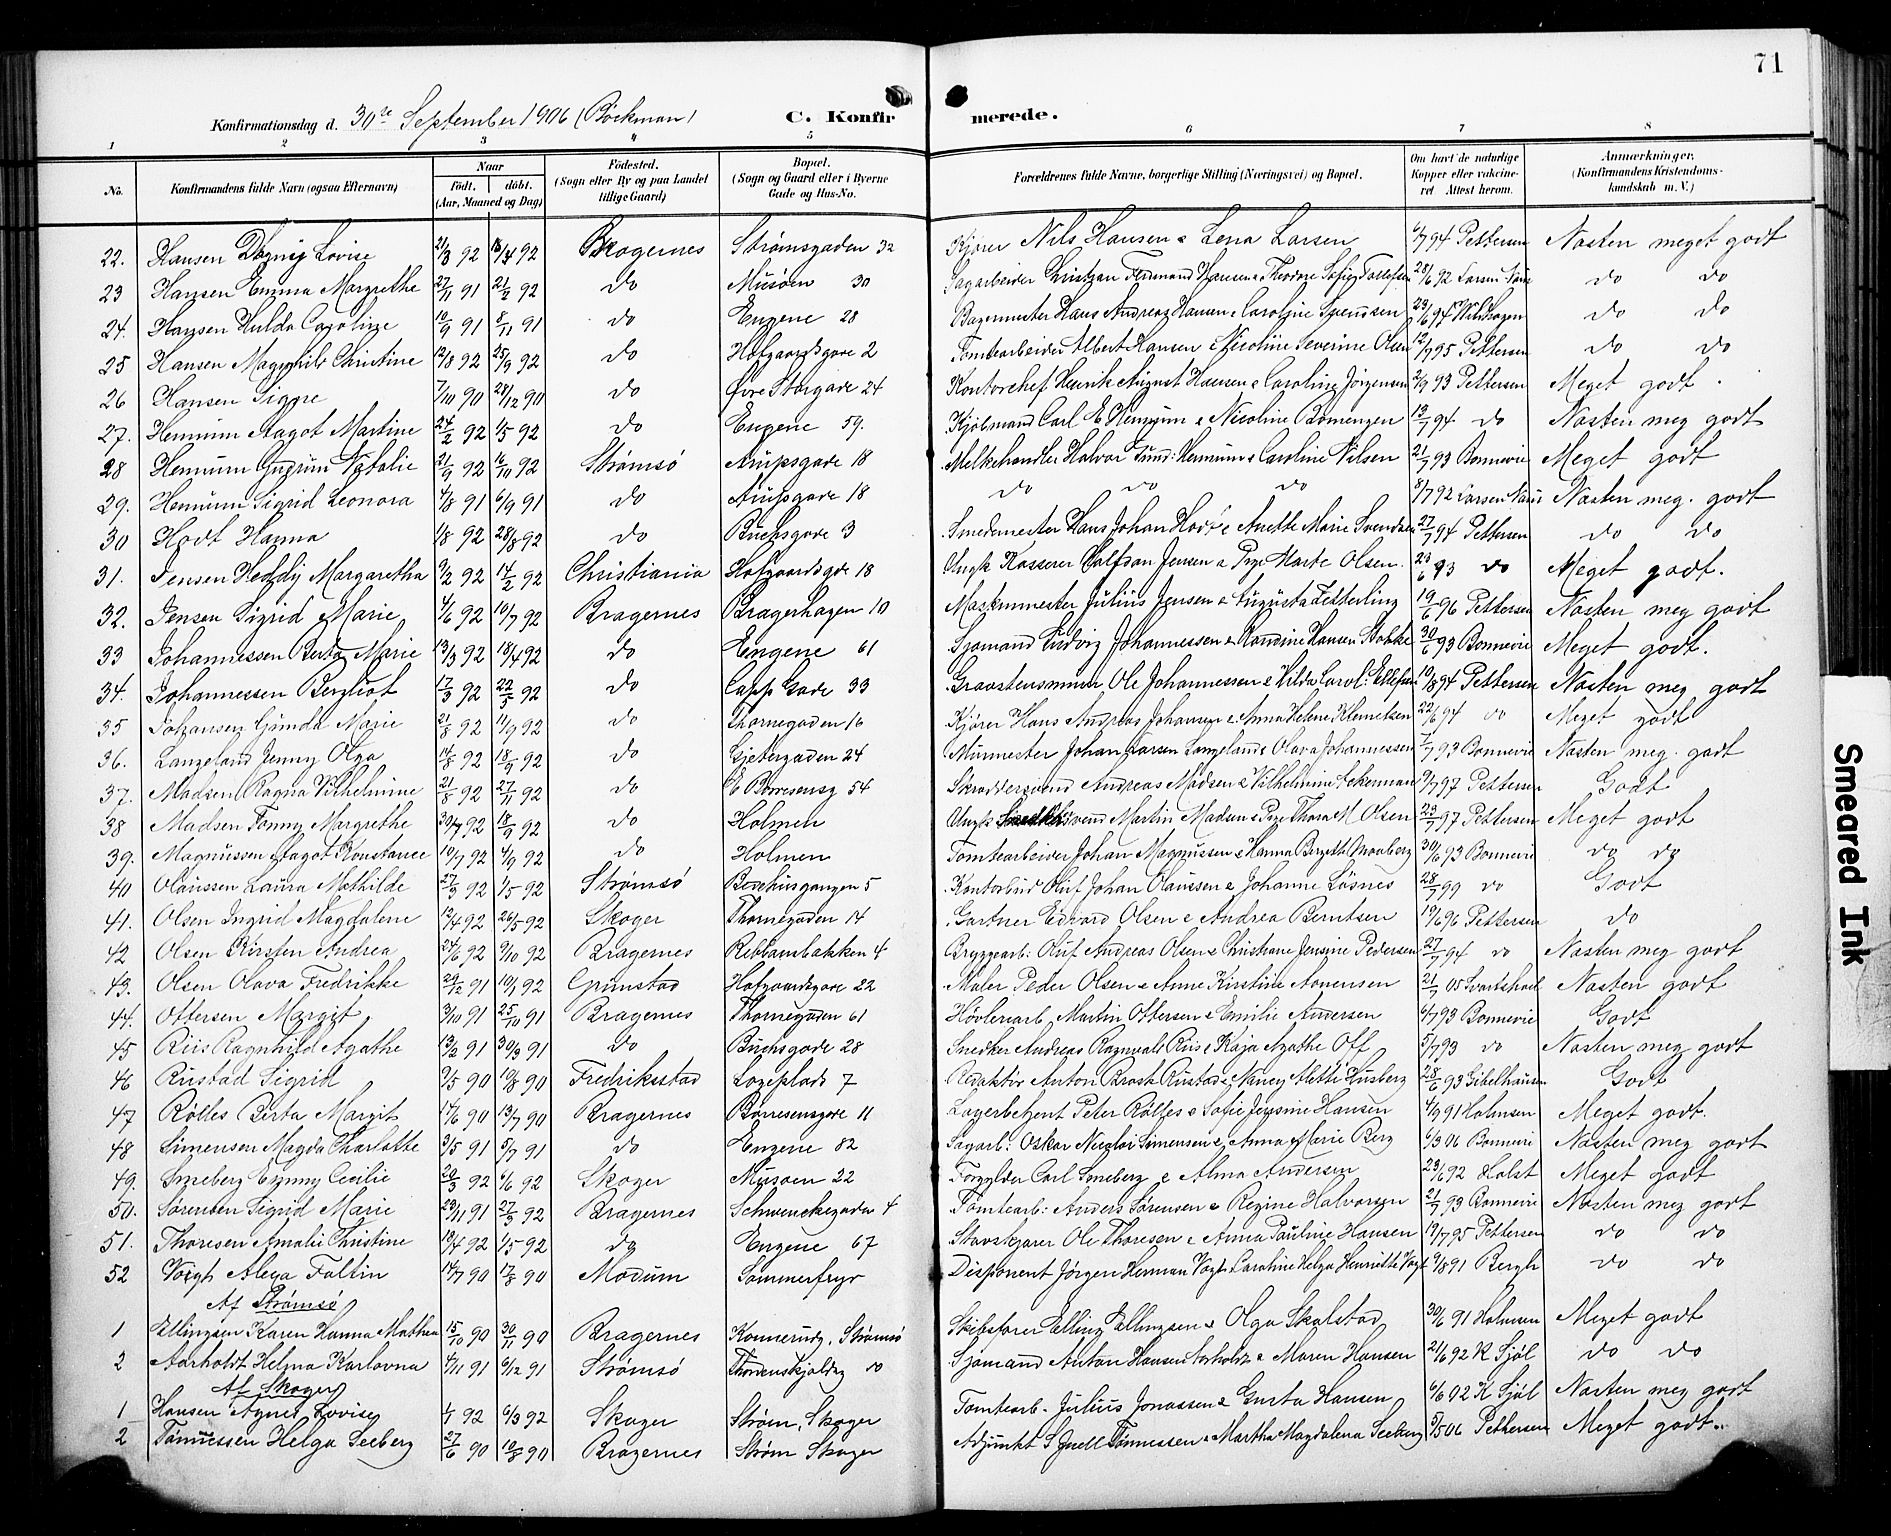 71
Konfirmationsdag d. 30te September 1906 (Bøckman) C. Konfirmerede.
1 2 3 4 5 6 7 8
No. Konfirmandens fulde Navn (ogsaa Efternavn) Naar født. døbt. (Aar, Maaned og Dag) Fødested. (Sogn eller By og paa Landet tillige Gaard) Bopæl. (Sogn og Gaard eller i Byerne Gade og Hus-No. Forældrenes fulde Navne, borgerlige Stilling (Næringsvei) og Bopæl. Om havt de naturlige Kopper eller vaccineret. Attest herom. Anmærkninger. (Konfirmandens Kristendomskundskab m. V.)
22. Hansen Dagny Lovise 21/3 92 18/4 92 Bragernes Strømsgaden 32 Kjører Nils Hansen & Lena Larsen 6/7 94 Pettersen Næsten meget godt
23 Hansen Emma Margrethe 27/11 91 21/2 92 do Musøen 30 Sagarbeider Christian Ferdinand Hansen & Theodore Sofie Tollefsen 28/6 92 Larsen Næss do do
24. Hansen Hulda Caroline 10/9 91 8/11 91 do Engene 28 Bagermester Hans Andreas Hansen & Caroline Svendsen 23/6 94 Wildhagen do do
25 Hansen Magnhild Christine 12/8 92 25/9 92 do Hofgaardsgade 2 Tomtearbeider Albert Hansen & Nicoline Severine Olsen 12/7 95 Pettersen do do
26 Hansen Signe 7/10 90 28/12 90 do Øvre Storgade 24 Kontorchef Henrik August Hansen & Caroline Jørgensen 2/9 93 Pettersen Meget godt.
27. Hennum Aagot Martine 24/2 92 1/5 92 do Engene 59. Kjøbmand Carl E Hennum & Nicoline Bomengen 13/7 94. do Næsten meg godt
28 Hennum Gudrun Natalie 21/9 92 16/10 92 Strømsø Arupsgade 18 Melkehandler Halvor Gund: Hennum & Caroline Nilsen 21/7 93 Bonnevie Meget godt
29. Hennum Sigrid Leonora 4/8 91 6/9 91 do Arupsgade 18 do do do 8/7 92 Larsen Næss Næsten meg. godt
30 Hodt Hanna 1/8 92 28/8 92 do Buchsgade 3 Smedemester Hans Johan Hodt & Anette Marie Svendsen 27/7 94 Pettersen do do
31. Jensen Heddy Margaretha 9/2 92 14/2 92 Christiania Hofgaardsgde 18 Ungk Kasserer Halfdan Jensen & Pige Marte Olsen. 23/6 93 do Meget godt.
32. Jensen Sigrid Marie 4/6 92 10/7 92 Bragernes Bragerhagen 10 Maskinmester Julius Jensen & Augusta Fetterling 19/6 96 Pettersen Næsten meg godt
33 Johannessen Berta Marie 13/3 92 18/4 92 do Engene 61 Sjømand Ludvig Johannessen & Randine Hansen Stokke 30/6 93 Bonnevie Meget godt.
34. Johannessen Bergliot 17/3 92 22/5 92 do Capp Gade 33 Graastensmurer Ole Johannessen & Hilda Carol: Ellefsen 10/8 94 Pettersen Næsten meg godt
35 Johansen Gunda Marie 21/8 92 11/9 92 do Thornegaden 16 Kjører Hans Andreas Johansen & Anna Helene Klemetsen 22/6 94 do Meget godt
36. Langeland Jenny Olga 14/8 92 18/9 92 do Gjetergaden 24 Murmester Johan Larsen Langeland & Olava Johannessen 7/7 93 Bonnevie Næsten meg. godt
37. Madsen Ragna Vilhelmine 21/8 92 27/11 92 do E Børresensg 54 Skræddersvend Andreas Madsen & Vilhelmine Ackerman 9/7 97 Pettersen Godt
38 Madsen Fanny Margrethe 30/7 92 18/9 92 do Holmen Ungk Snedkersvend Martin Madsen & Pige Thora M Olsen 23/7 97 Pettersen Meget godt
39. Magnussen Aagot Konstance 10/7 92 4/9 92 do Holmen Tomtearbeider Johan Magnussen & Hanna Birgitte Moaberg 30/6 93 Bonnevie do do
40 Olaussen Laura Mathilde 27/3 92 1/5 92 Strømsø Beschusgangen 5 Kontorbud Oluf Johan Olaussen & Johanne Løsnes 28/7 99 do Godt
41. Olsen Ingrid Magdalene 13/4 92 26/5 92 Skoger Thornegaden 14 Gartner Edvard Olsen & Andrea Berntsen 19/6 96 Pettersen do
42 Olsen Kirsten Andrea 24/6 92 9/10 92 Bragernes Ribbansbakken 4 Bryggearb: Oluf Andreas Olsen & Christiane Jensine Pedersen 27/7 94 do Næsten meg godt
43. Olsen Olava Fredrikke 29/12 91 10/4 92 Grimstad Hofgaardsgade 22 Maler Peder Olsen & Anne Kirstine Aanensen 21/7 05 Svartshoel Næsten godt
44. Ottersen Margit 3/10 91 25/10 91 Bragernes Thornegaden 61 Høvleriarb Martin Ottersen & Emilie Andersen 6/7 93 Bonnevie Godt
45 Riis Ragnhild Agathe 13/2 91 30/3 91 do Buchsgade 28 Snedker Andreas Ragnvald Riis & Kaja Agathe Off 5/7 93 do Næsten meg godt
46 Rustad Sigrid 9/5 90 10/8 90 Fredriksstad Logeplads 7 Redaktør Anton Brosk Rustad & Nancy Alette Husberg 28/6 93 Gibelhausen Godt
47 Rolles Berta Margit 14/6 90 13/7 90 Bragernes Børresensgade 11 Lagerbetjent Peter Rolfes & Sofie Jensine Hansen 4/9 91 Holmsen Meget godt.
48 Simensen Magda Charlotte 3/5 91 5/7 91 do Engene 82 Sagarb: Oskar Nicolai Simensen & Anna Marie Berg 6/3 06 Bonnevie Næsten meg godt
49. Smeberg Emmy Cecilie 20/3 92 6/6 92 Skoger Musøen 22 Forgylder Carl Smeberg & Alma Andersen 23/6 92 Holst Meget godt
50. Sørensen Sigrid Marie 23/11 91 27/3 92 Bragernes Schwenckegaden 4 Tomtearb: Anders Sørensen & Regine Halvorsen 21/7 93 Bonnevie Næsten meg godt
51. Thoresen Amalie Christine 18/4 92 1/5 92 do Engene 67 Stavskjærer Ole Thoresen & Anna Pauline Hansen 19/7 95 Pettersen do do
52 Voigt Alexa Faltin 14/7 90 17/8 90 Modum Sommerfryd Disponent Jørgen Herman Vogt & Caroline Helga Henriette Vogt 9/8 91 Bergh do do
Af Strømsø
1 Ellingsen Karen Hanna Mathea 15/10 90 30/11 90 Bragernes Konnerudg. Strømsø Skibsfører Elling Ellingsen & Olga Skalstad 30/6 91 Holmsen Meget godt
2 Aarholdt Helma Karlovna 4/11 91 6/12 91 Strømsø Thordenskjoldsg do Sjømand Anton Hansen Aarholdt & Maren Hansen 21/6 92 K Sjøl do do
Af Skoger
1 Hansen Agnes Lovise 1/1 92 6/3 92 Skoger Strøm, Skoger Tomtearb. Julius Jonassen & Gusta Hansen 6/6 02 K Sjøl Næsten meg godt
2 Tønnessen Helga Seeberg 27/6 90 10/8 90 Bragernes Strøm Skoger Adjunkt S Juell Tønnessen & Martha Magdalena Seeberg 5/5 06 Pettersen Meget godt.
Smeared Ink